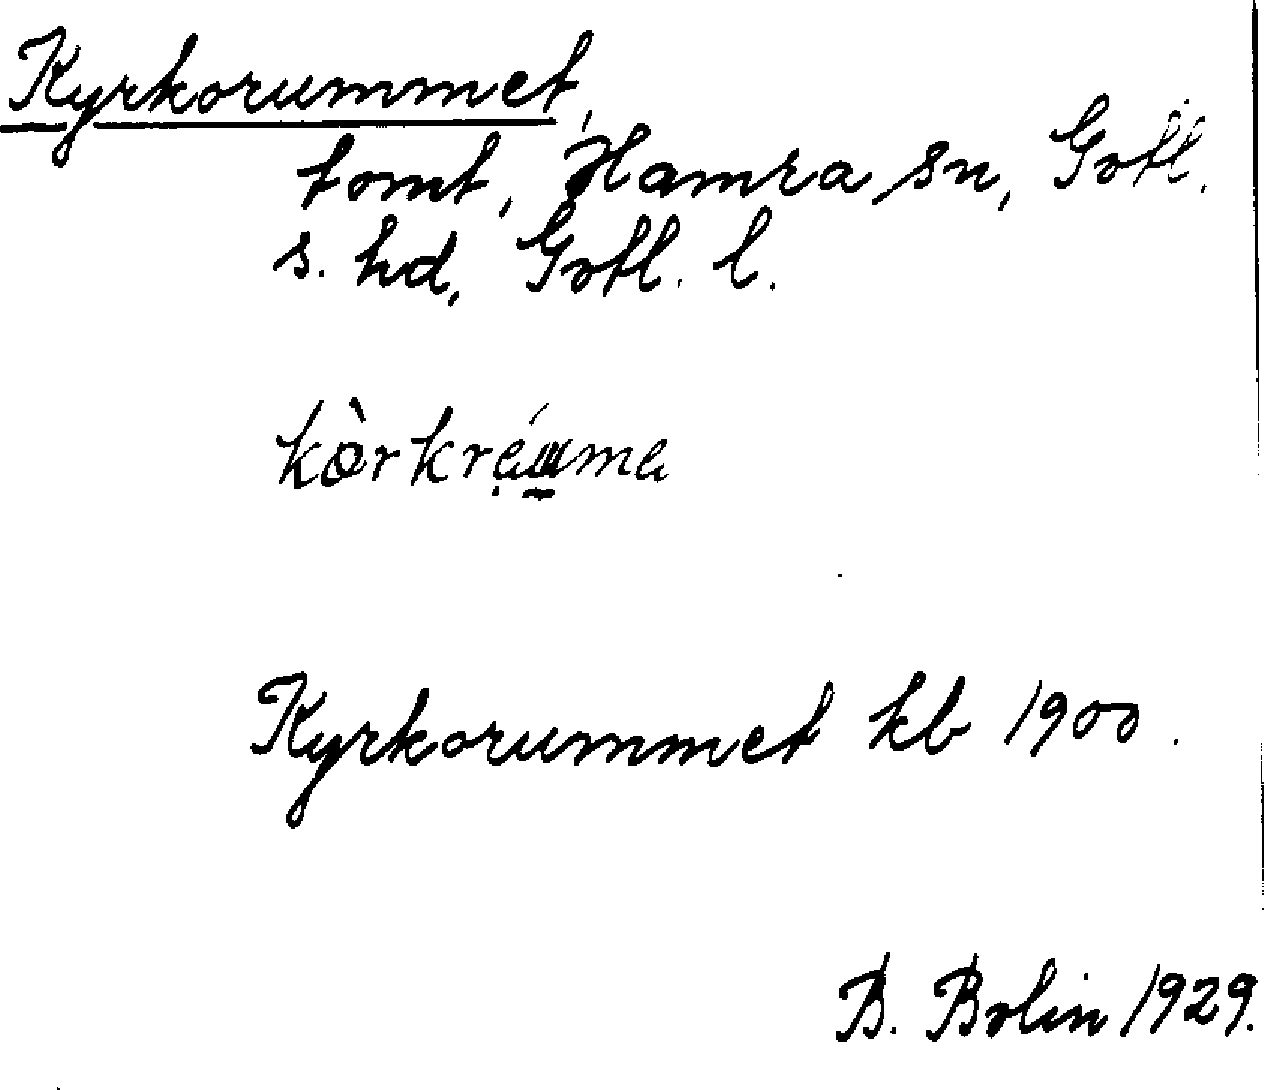 Kyrkorummet,
tomt, Hamra sn, Gotl.
s. hd, Gotl. l.
Kyrkorummet kb 1900.
B. Bolin 1929.